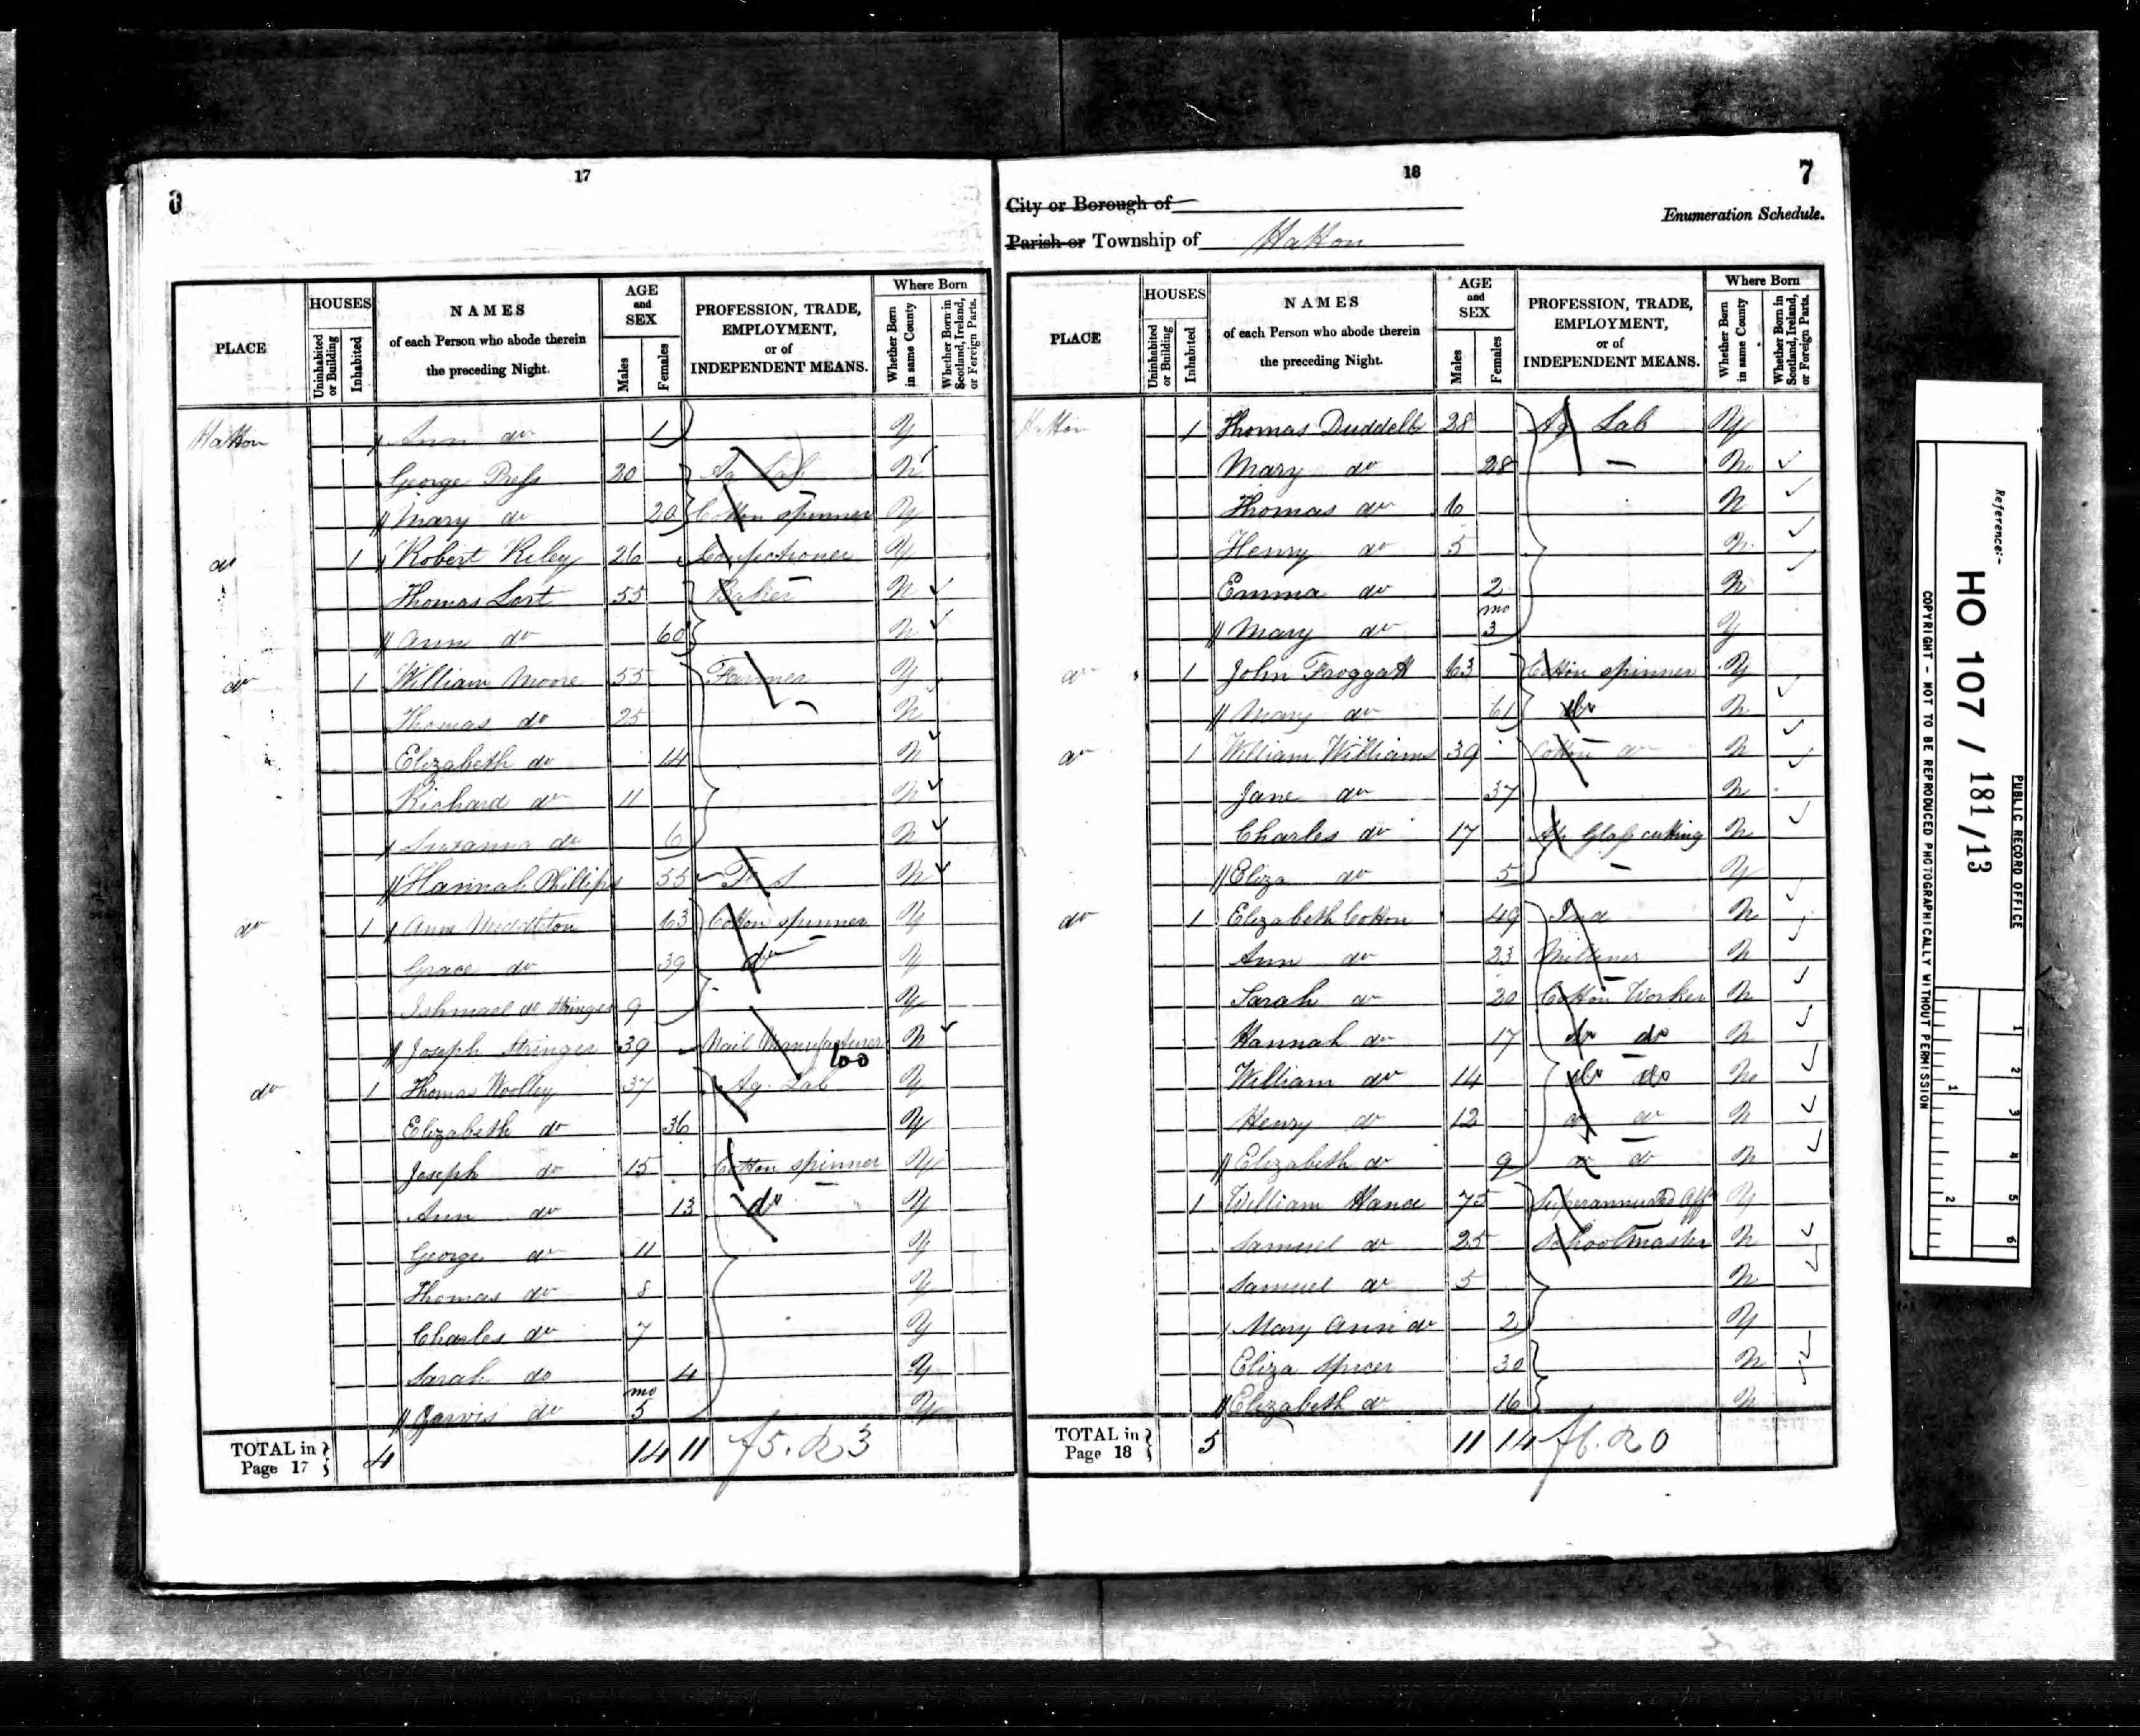 17
TOTAL in Page 17
PLACE
HOUSES
Uninhabited or Building
Inhabited
NAMES
of each Person who abode therein
the preceding Night.
AGE and SEX
Males
Females
PROFESSION, TRADE, EMPLOYMENT, or of INDEPENDENT MEANS.
Where Born
Whether Born in same County
Whether Born in Scotland, Ireland, or Foreign Parts.
Hatton Ann do 1 Y
George Press 20 Ag Lab N
Mary do 20 Cotton spinner Y
do 1 Robert Riley 26 Confectioner Y
Thomas Lort 55 Baker N
Ann do 60 N
do 1 William Moore 55 Farmer Y
Thomas do 25 N
Elizabeth do 14 N
Richard do 11 N
Suzanna do 6 N
Hannah Phillips 55 F S N
do 1 Anne Middleton 63 Cotton spinner Y
Grace do 39 do Y
Ishmael do Stringer 9 Y
Joseph Stringer 39 Nail Manufacturer N
do 1 Thomas Woolley 37 Ag. Lab Y
Elizabeth do 36 Y
Joseph do 15 Cotton spinner Y
Ann do 13 do Y
George do 11 Y
Thomas do 8 Y
Charles do 7 Y
Sarah do 4 Y
Jarvis do mo 5 Y
4 14 11
18
7
City or Borough of
Enumeration Schedule.
Parish or Township of Hatton
PLACE
HOUSES
Uninhabited or Building
Inhabited
NAMES
of each Person who abode therein
the preceding Night.
AGE and SEX
Males
Females
PROFESSION, TRADE, EMPLOYMENT, or of INDEPENDENT MEANS.
Where Born
Whether Born in same County
Whether Born in Scotland, Ireland, or Foreign Parts.
Hatton 1 Thomas Duddell 28 Ag Lab Y
Mary do 28 N
Thomas do 6 N
Henry do 5 N
Emma do 2 N
Mary do mo 3 Y
do 1 John Froggatt 63 Cotton spinner Y
Mary do 61 do N
do 1 William Williams 39 Cotton do N
Jane do 37 N
Charles do 17 Ap Glass cutting N
Eliza do 5 Y
do 1 Elizabeth Cotton 49 Ind N
Ann do 23 Milliner N
Sarah do 20 Cotton Worker N
Hannah do 17 do do N
William do 14 do do N
Henry do 12 do do N
Elizabeth do 9 do do N
1 William Hand 75 Superannuated Off Y
Samuel do 25 Schoolmaster N
Samuel do 5 N
Mary Ann do 2 Y
Eliza Spicer 30 N
Elizabeth do 16 N
TOTAL in Page 18 5 11 14
Reference:-
HO 107 / 181/13
PUBLIC RECORD OFFICE
COPYRIGHT - NOT TO BE REPRODUCED PHOTOGRAPHICALLY WITHOUT PERMISSION
1 2 3 4 5 6
1 2